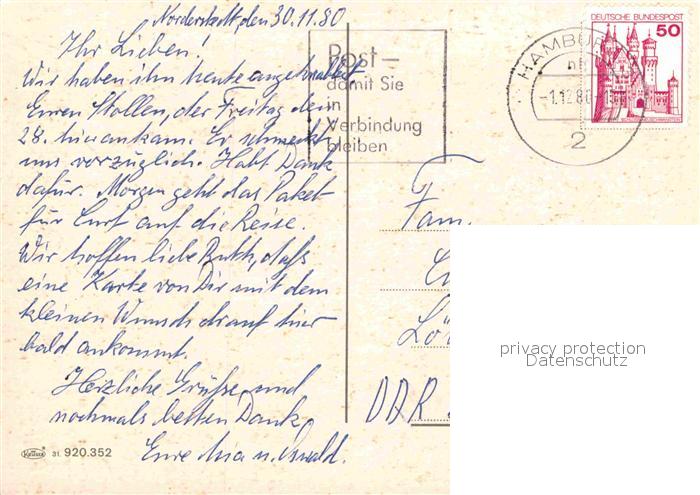 Norderstedt, den 30.11.80
Ihr Lieben!
Wir haben ihn heute angeknabbert
Euren Stollen, der Freitag den
28. hier ankam. Er schmeckt
uns vorzüglich. Habt Dank
dafür. Morgen geht das Paket
für Curt auf die Reise.
Wir hoffen liebe Ruth, daß
eine Karte von Dir mit dem
kleinen Wunsch drauf hier
bald ankommt.
Herzliche Grüße und
nochmals besten Dank,
Eure Mia u. Oswald.
Kettner 31 920.352
Post-
damit Sie
in
Verbindung
bleiben
HAMBURG
-1.12.80
2
DEUTSCHE BUNDESPOST
50
Fam.
Lö
DDR
privacy protection
Datenschutz